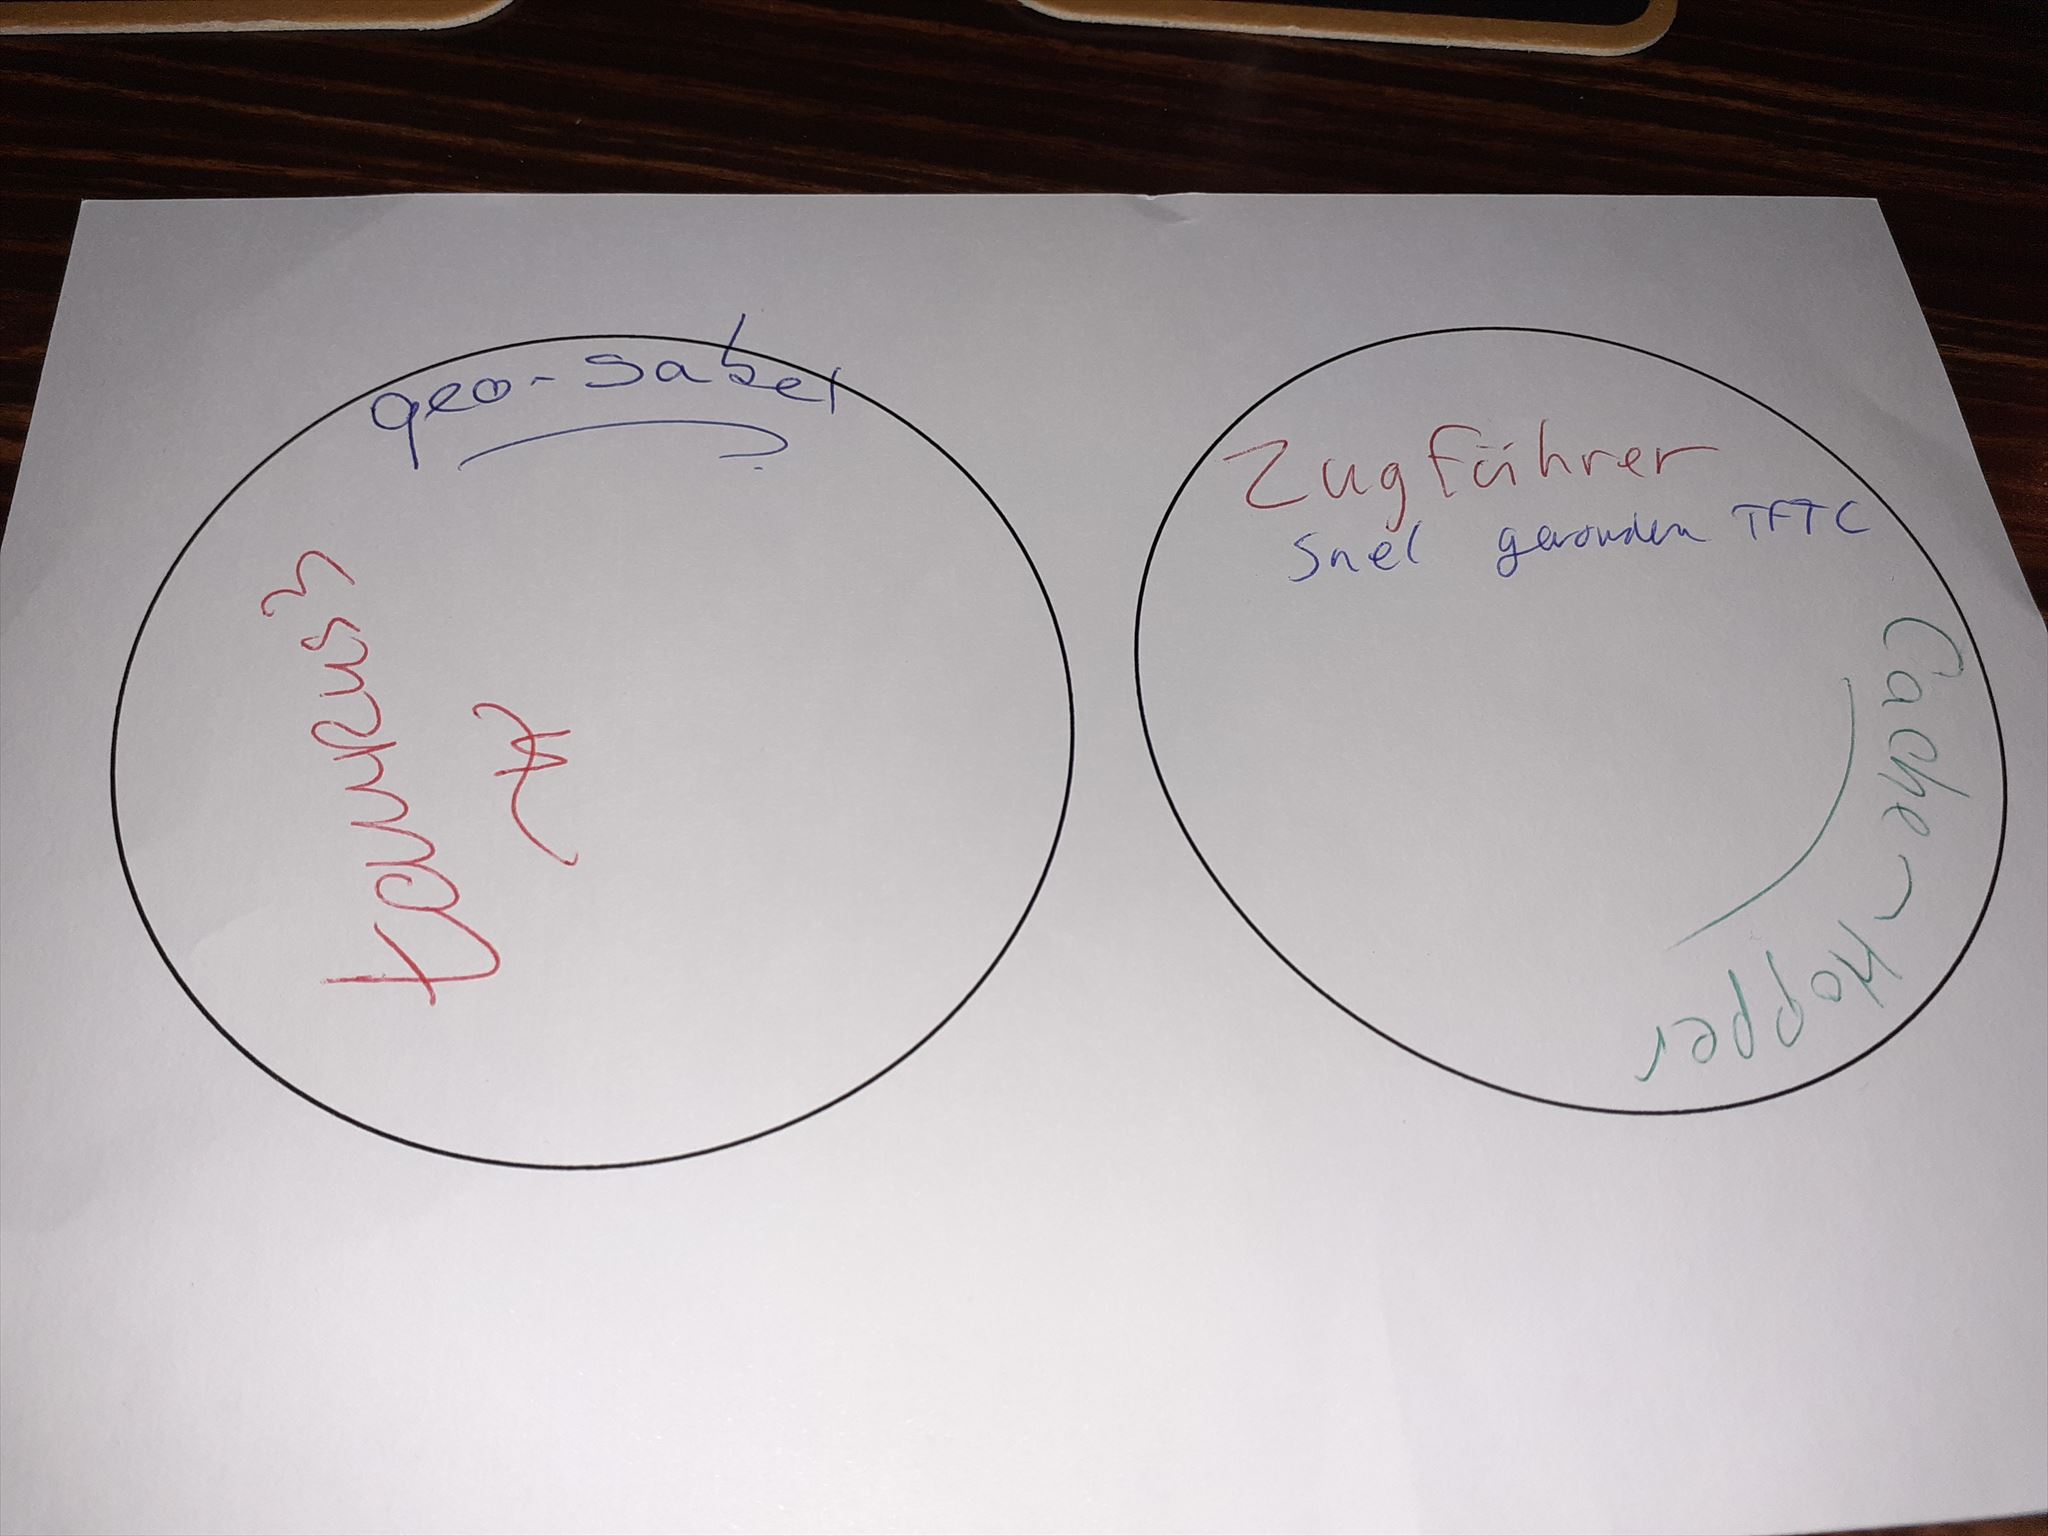 geo-sabel
taurus3
Zugführer
Snel gevonden TFTC
Cache-Hopper